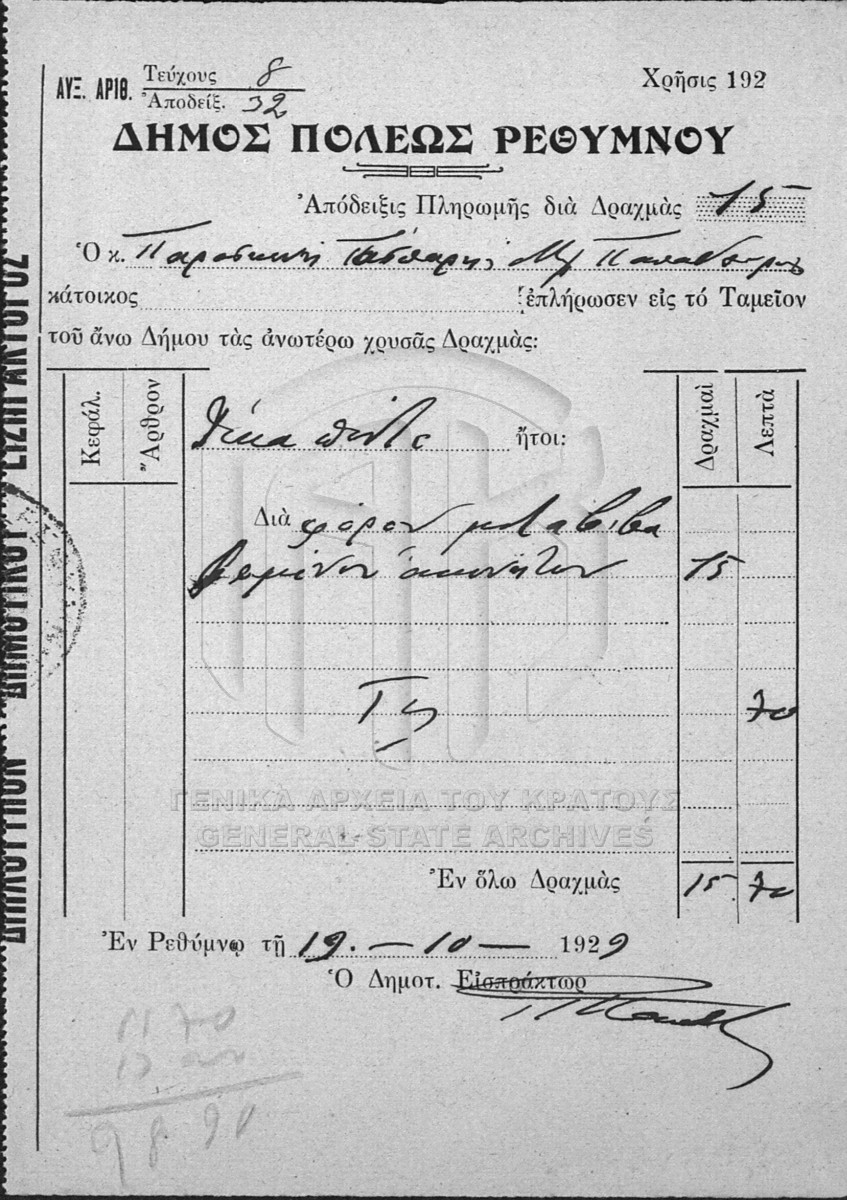 ΑΥΞ. ΑΡΙΘ. Τεύχους 8
Ἀποδείξ. 32
Χρῆσις 192
ΔΗΜΟΣ ΠΟΛΕΩΣ ΡΕΘΥΜΝΟΥ
Ἀπόδειξις Πληρωμῆς διὰ Δραχμὰς 15
Ὁ κ.
κάτοικος ἐπλήρωσεν εἰς τό Ταμεῖον
τοῦ ἄνω Δήμου τὰς ἀνωτέρω χρυσᾶς Δραχμὰς:
Κεφάλ. Ἄρθρον Δραχμαὶ Λεπτὰ
Δέκα πέντε ἤτοι:
Διὰ φόρον μεταβιβα
ζομένων ἀκινήτων 15
70
Ἐν ὅλω Δραχμὰς 15 70
Ἐν Ρεθύμνῳ τῇ 19. - 10 - 1929
Ὁ Δημοτ. Εἰσπράκτωρ
ΔΙΠΛΟΤΥΠΟΝ ΔΗΜΟΤΙΚΟΥ ΕΙΣΠΡΑΚΤΟΡΟΣ
ΓΕΝΙΚΑ ΑΡΧΕΙΑ ΤΟΥ ΚΡΑΤΟΥΣ
GENERAL STATE ARCHIVES